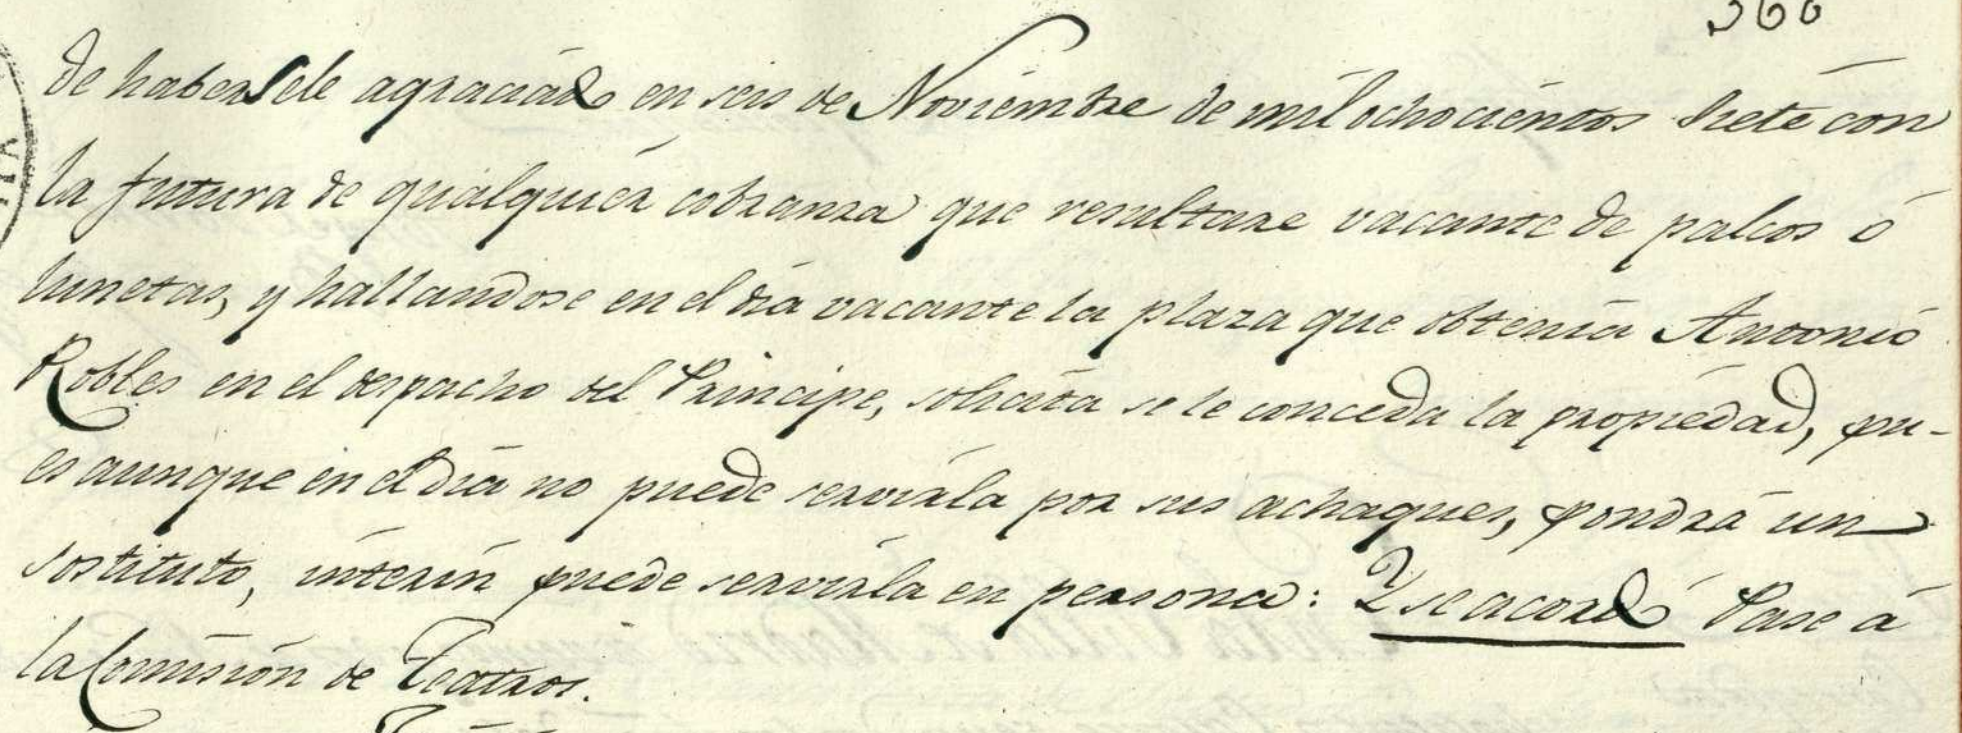 366
de habersele agraciado en seis de Noviembre de mil ochocientos siete con
la futura de qualquier cobranza que resultare vacante de palcos ó
lunetas, y hallandose en el dia vacante la plaza que obtenia Antonio
Robles en el despacho del Principe, solicita se le conceda la propiedad, pu-
es aunque en el dia no puede servirla por sus achaques, pondrá un
sostituto, interin puede servirla en persona: Y se acordó Pase á
la Comision de Teatros.